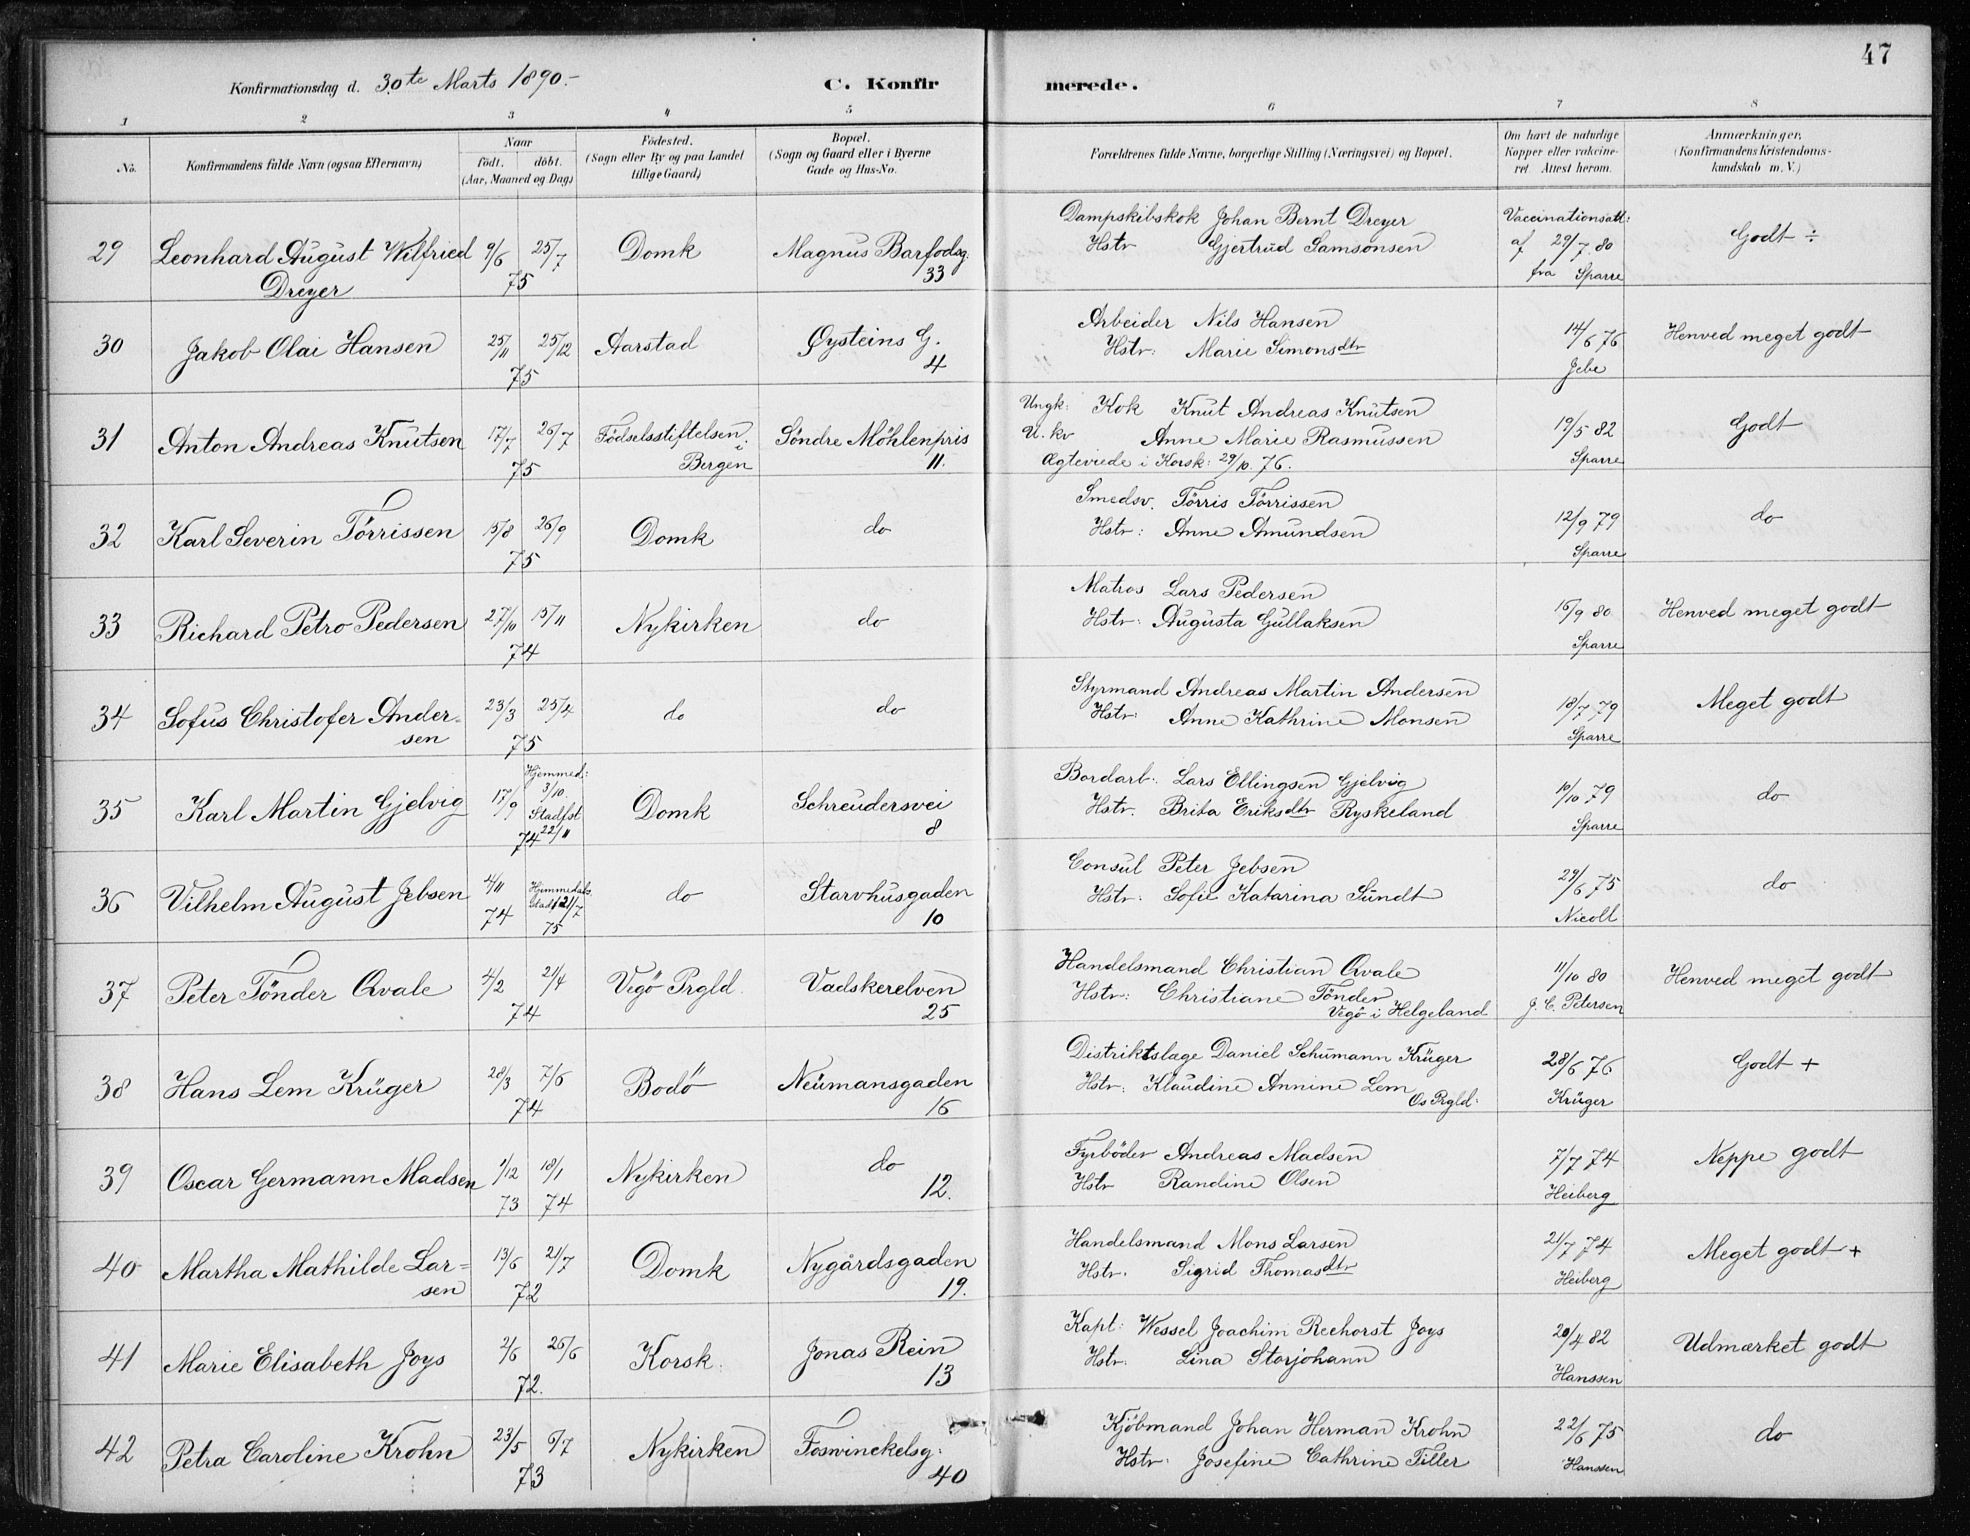 47
Konfirmationsdag d. 30te Marts 1890.-
C. Konfirmerede.
1 2 3 4 5 6 7 8
No. Konfirmandens fulde Navn (ogsaa Efternavn) Naar födt. döbt. (Aar, Maaned og Dag) Födested. (Sogn eller By og paa Landet tillige Gaard) Bopæl. (Sogn og Gaard eller i Byerne Gade og Hus-No. Forældrenes fulde Navne, borgerlige Stilling (Næringsvei) og Bopæl. Om havt de naturlige Kopper eller vaccineret Attest herom. Anmærkninger. (Konfirmandens Kristendomskundskab m. V.)
29 Leonhard August Wilfried Dreyer 9/6 25/7 75 Domk Magnus Barfodsg. 33 Dampskibskok Johan Bernt Dreyer Vaccinationsatt: Godt ÷
Hstr Gjertrud Samsonsen af 29/7 80 fra Sparre
30 Jakob Olai Hansen 25/11 25/12 75 Aarstad Øysteins G. 4 Arbeider Nils Hansen 14/6 76 Henved meget godt
Hstr: Marie Simonsdtr Jebe
31 Anton Andreas Knutsen 17/7 26/7 75 Födselsstiftelsen i Bergen Söndre Möhlenpris 11. Ungk: Kok Knut Andreas Knutsen 19/5 82 Godt
U. kv Anne Marie Rasmussen Sparre
Ægteviede i Korsk: 29/10. 76.
32 Karl Severin Törrissen 15/8 26/9 75 Domk do Smedsv. Törris Törrissen 12/9 79 do
Hstr: Anne Amundsen Sparre
33 Richard Petro Pedersen 27/10 15/11 74 Nykirken do Matros Lars Pedersen 16/9 80 Henved meget godt
Hstr: Augusta Gullaksen Sparre
34 Sofus Christofer Andersen 23/3 25/4 75 do do Styrmand Andreas Martin Andersen 18/7 79 Meget godt
Hstr: Anne Kathrine Monsen Sparre
35 Karl Martin Gjelvig 17/9 Hjemmed: 3/10. Stadfst 22/11 74 Domk Schreudersvei 8 Bordarb. Lars Ellingsen Gjelvig 10/10 79 do
Hstr. Brita Eriksdtr Ryskeland Sparre
36 Vilhelm August Jebsen 4/11 74 Hjemmedøbt Stadf 21/7 75 do Starvhusgaden 10 Consul Peter Jebsen 29/6 75 do
Hstr: Sofie Katarina Sundt Nicoll
37 Peter Tönder Qvale 4/2 21/4 74 Vegö Prgld. Vadskerelven 25 Handelsmand Christian Qvale 11/10 80 Henved meget godt
Hstr: Christiane Tönder Vegö i Helgeland J. C. Petersen
38 Hans Lem Krüger 28/3 7/6 74 Bodö Neumansgaden 16 Distriktslæge Daniel Schumann Krüger 28/6 76 Godt +
Hstr: Klaudine Annine Lem Os Prgld: Krüger
39 Oscar Germann Madsen 1/12 73 18/1 74 Nykirken do 12. Fyrböder Andreas Madsen 7/7 74 Neppe godt
Hstr Randine Olsen Heiberg
40 Martha Mathilde Larsen 13/6 21/7 72 Domk Nygårdsgaden 19. Handelsmand Mons Larsen 21/7 74 Meget godt +
Hstr. Sigrid Thomasdtr Heiberg
41 Marie Elisabeth Joys 2/6 26/6 72. Korsk. Jonas Rein 13 Kapt: Wessel Joachim Reehorst Joys 20/4 82 Udmærket godt
Hstr. Lina Storjohann Hanssen
42 Petra Caroline Krohn 23/5 6/7 73 Nykirken Foswinckelsg: 40 Kjöbmand Johan Herman Krohn 22/6 75 do
Hstr. Josefine Cathrine Tiller Hanssen